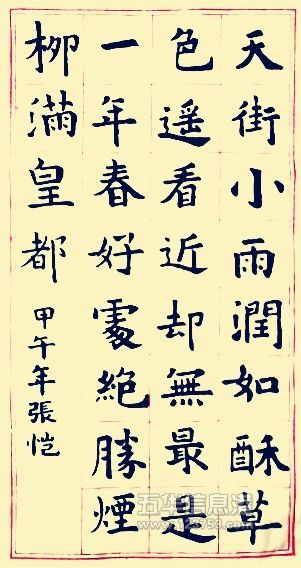 天街小雨潤如酥草
色遥看近却無最是
一年春好處絶勝煙
柳滿皇都
甲午年張恺
五华信息港